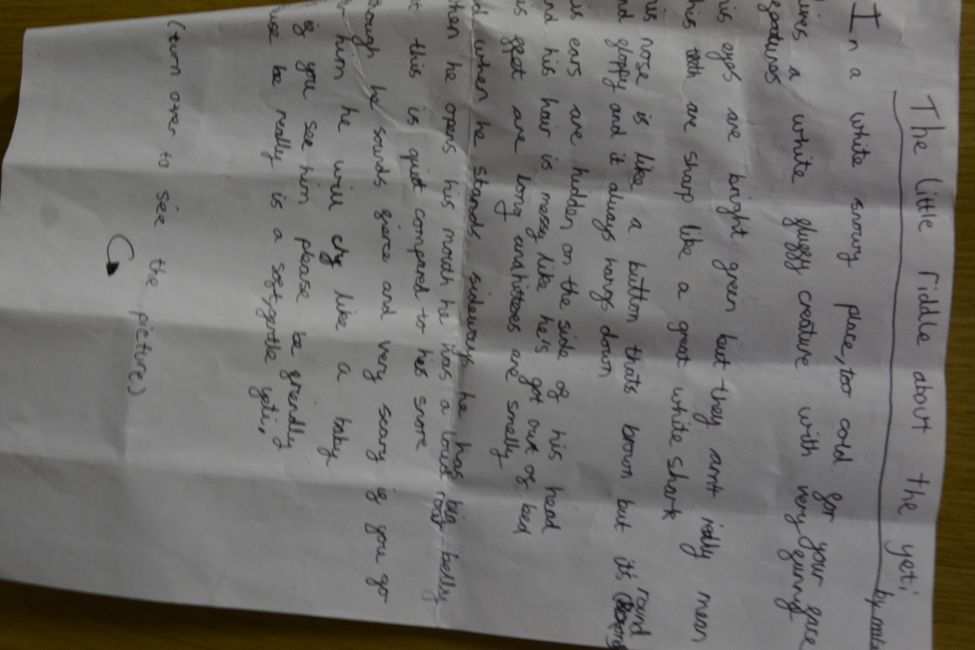 The little riddle about the yeti
by
In a white snowy place, too cold for your face
lives a white fluffy creature with very funny
features
his eyes are bright green but they arnt really mean
his teeth are sharp like a great white shark
his nose is like a button thats brown but its round
and floppy and it always hangs down
his ears are hidden on the side of his head
and his hair is messy like he's got out of bed
his feet are long and his toes are smelly
when he stands sideways he has big belly
when he opens his mouth he has a loud roar
this is quiet compared to his snore
he sounds fierce and very scary if you go
him he will cry like a baby
if you see him please be friendly
he really is a soft, gentle yeti,
(turn over to see the picture)